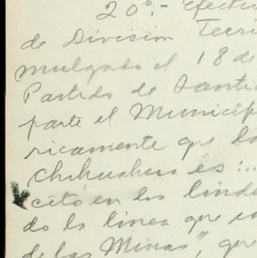 20º.- Efecti
de División Terri
mulgada el 18 de
Partido de Santi
parte el Municip
ricamente que la
Chihuahua es:..
citó en los linde
do la linea que
de las Minas", que